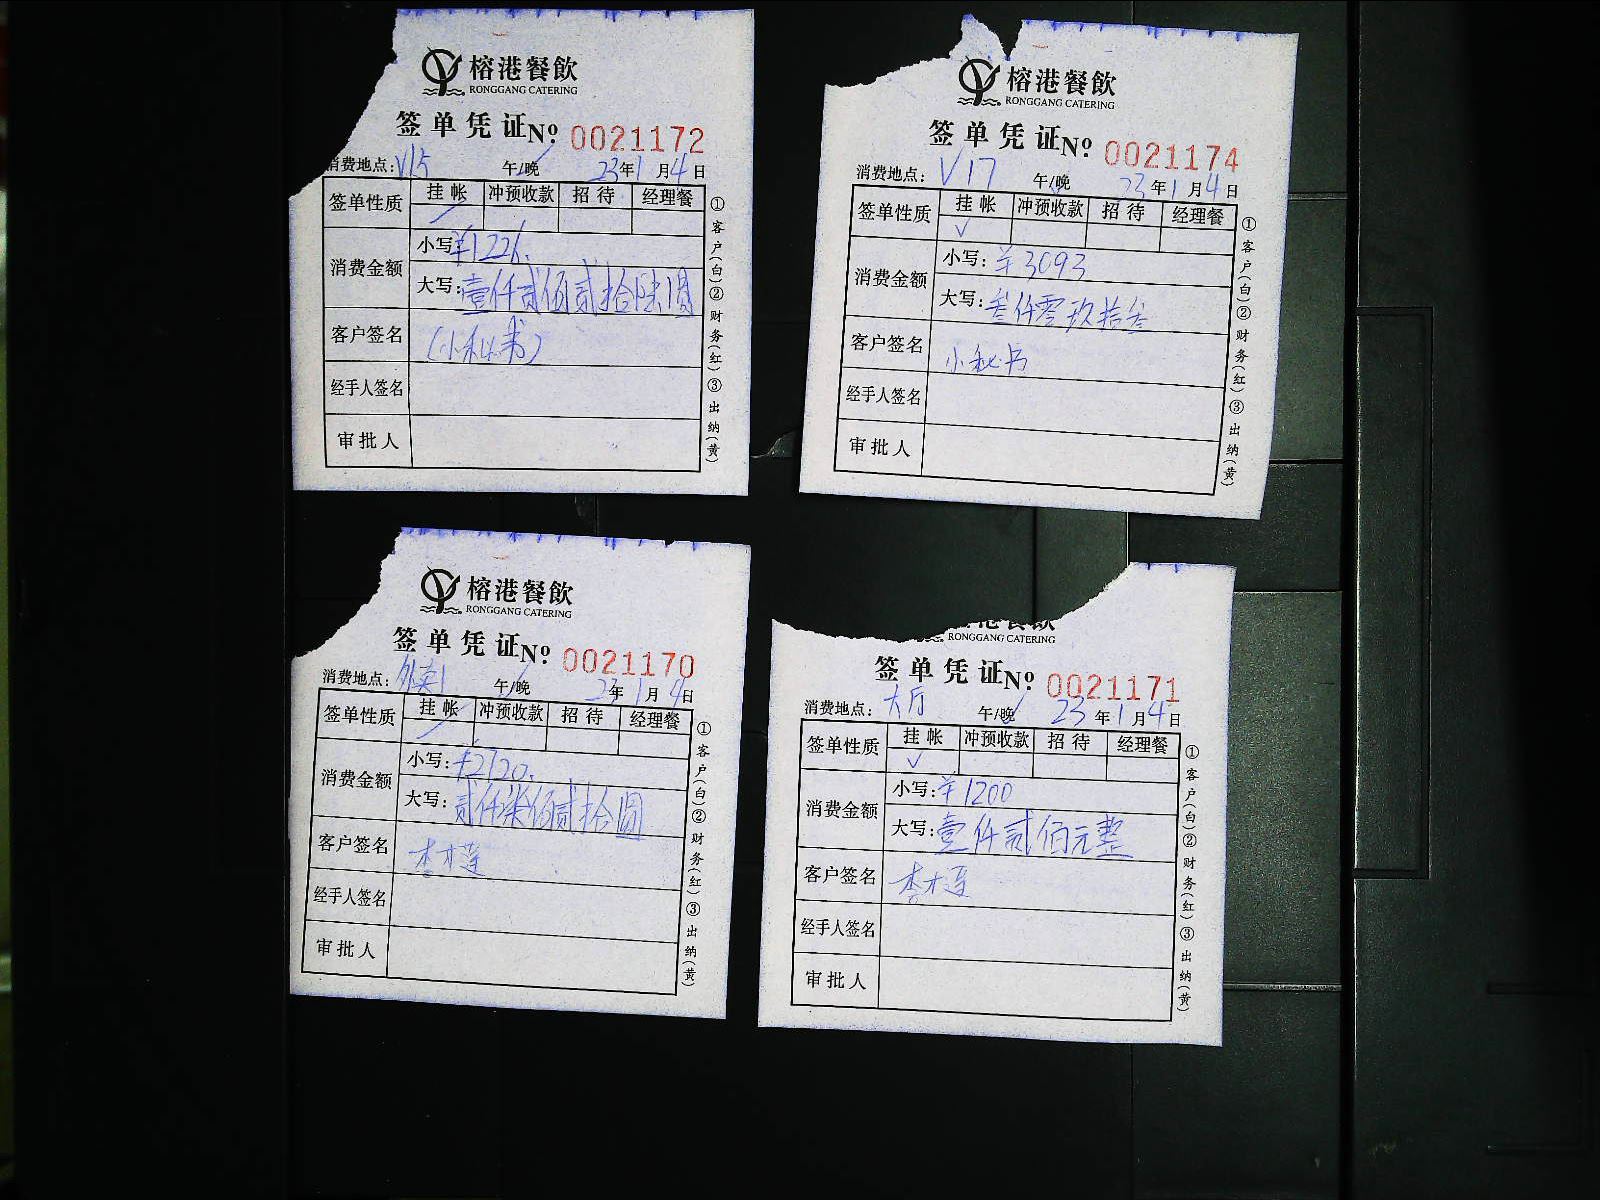 榕港餐飲
RONGGANG CATERING
签单凭证 № 0021172
消费地点: V15 午/晚 23年1月4日
签单性质 挂帐 冲预收款 招待 经理餐
消费金额
小写: ¥1226.
大写: 壹仟贰佰贰拾陆圆
客户签名 (小秘书)
经手人签名
审批人
①客户(白)②财务(红)③出纳(黄)
榕港餐飲
RONGGANG CATERING
签单凭证 № 0021174
消费地点: V17 午/晚 23年1月4日
签单性质 挂帐 冲预收款 招待 经理餐
√
消费金额
小写: ¥3093
大写: 叁仟零玖拾叁
客户签名 小秘书
经手人签名
审批人
①客户(白)②财务(红)③出纳(黄)
榕港餐飲
RONGGANG CATERING
签单凭证 № 0021170
消费地点: 外卖1 午/晚 23年1月4日
签单性质 挂帐 冲预收款 招待 经理餐
消费金额
小写: ¥2720.
大写: 贰仟柒佰贰拾圆
客户签名 李才莲
经手人签名
审批人
①客户(白)②财务(红)③出纳(黄)
榕港餐飲
RONGGANG CATERING
签单凭证 № 0021171
消费地点: 大厅 午/晚 23年1月4日
签单性质 挂帐 冲预收款 招待 经理餐
√
消费金额
小写: ¥1200
大写: 壹仟贰佰元整
客户签名 李才莲
经手人签名
审批人
①客户(白)②财务(红)③出纳(黄)